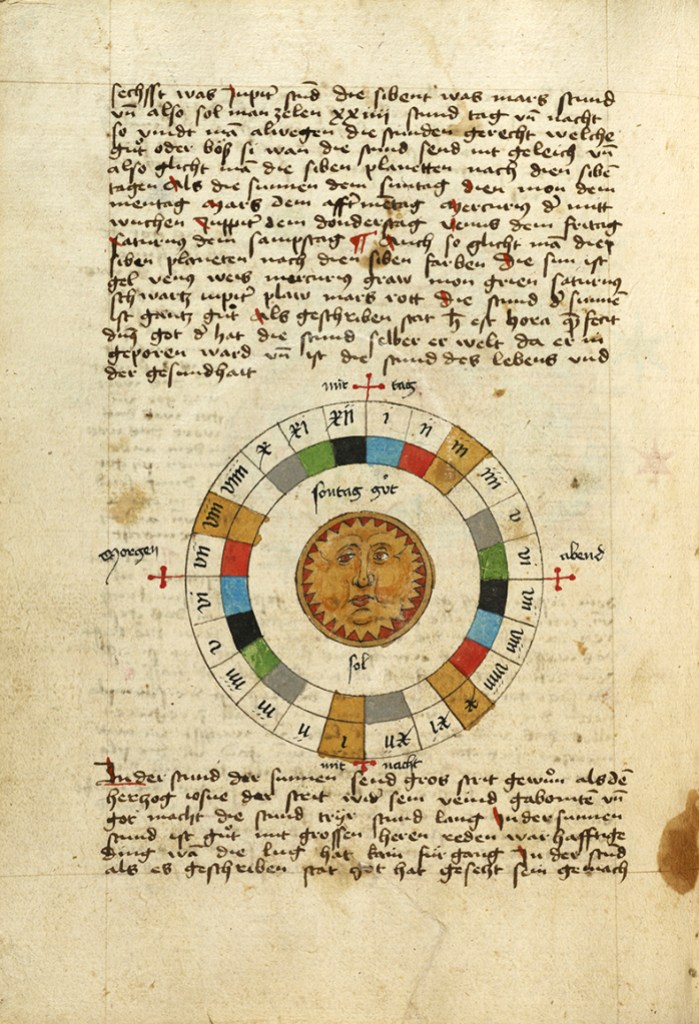 sechsst was Jupiter stund die sibent was mars stund
vn also sol man zelen xxiiii stund tag vn nacht
so vindt ma alwegen die stunden gerecht welche
gůt oder böß si wan die stund send nit geleich vn
also glicht ma die siben planetten nach dien sibe
tagen Als die sunnen dem suntag dien mon dem
mentag Mars dem afftrmetag Mercurius d mitt
wuchen Juppiter dem donderstag Venus dem fritag
Saturnus dem sampstag ¶ Auch so glicht ma diese
siben planeten nach dien siben farben Die sun ist
gel venus weis mercurius graw mon grien saturnus
schwartz iupiter plaw mars rott Die stund d sunne
ist gantz gůt Als geschriben stat h est hora qm fecit
dns got d hat die stund selber er welt da er in
geporen ward vn ist die stund des lebens vnd
der gesundhait
mit tag
xii i ii iii iiii v vi vii viii viiii x xi xii
i ii iii iiii v vi vii viii viiii x xi
sontag gůt
Morgen
abend
sol
mit nacht
In der stund der sunnen send gros strit gewun als de
herzog iosue der strit wider sein veind gabomten vn
got macht die stund tryer stund lang In der sunnen
stund ist gůt mit grossen heren reden warhafftige
ding wa die lug hat kain fürgang In der stund
als es geschriben stat got hat gesetzt sein gemach